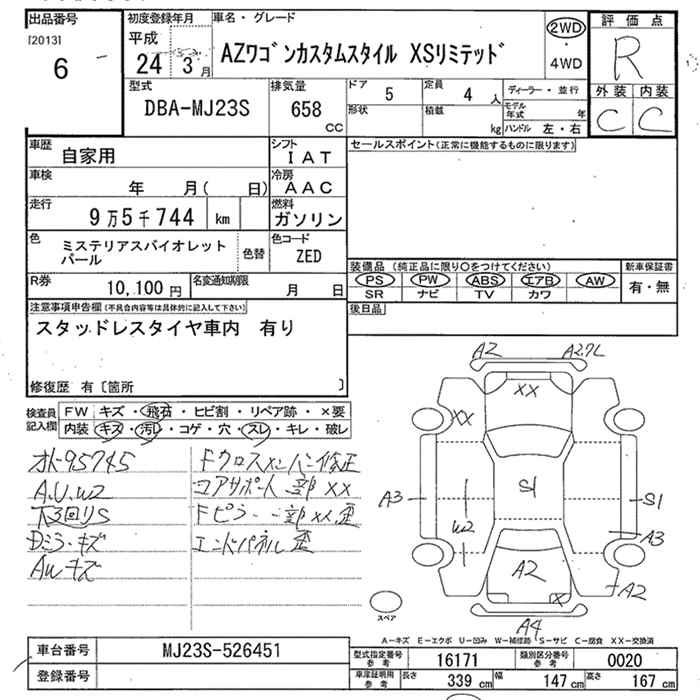 出品番号
[2013]
6
初度登録年月
平成
24 3月
車名・グレード
AZワゴンカスタムスタイル XSリミテッド
2WD
・
4WD
評価点
R
外装 内装
C C
型式
DBA-MJ23S
排気量
658
CC
ドア
5
定員
4 人
形状
積載
kg
ディーラー・並行
モデル年式 年
ハンドル 左・右
車歴
自家用
シフト
IAT
車検
年 月( 日)
冷房
AAC
走行
9万5千744 km
燃料
ガソリン
色
ミステリアスバイオレット
パール
色替
色コード
ZED
R券
10,100 円
名変通知期限
月 日
セールスポイント(正常に機能するものに限ります)
装備品 (純正品に限り○をつけてください)
PS PW ABS エアB AW
SR ナビ TV カワ
新車保証書
有・無
後日品
注意事項申告欄(不具合内容等は具体的に記入して下さい)
スタッドレスタイヤ車内 有り
修復歴 有〔箇所 〕
検査員
記入欄
FW キズ・飛石・ヒビ割・リペア跡・×要
内装 キズ・汚レ・コゲ・穴・スレ・キレ・破レ
オト95745
A.U.W2
下3回りS
Dミラ・キズ
AWキズ
Fクロスメンバー修正
コアサポート一部XX
Fピラー一部XX.歪
エンドパネル歪
A2
XX
XX
A3
S1
W2
S1
A3
A2
A2
X
A4
スペア
A―キズ E―エクボ U―凹み W―補修跡 S―サビ C―腐食 XX―交換済
車台番号
MJ23S-526451
登録番号
型式指定番号
参考
16171
類別区分番号
参考
0020
車庫証明用
参考
長さ 339 cm
幅 147 cm
高さ 167 cm